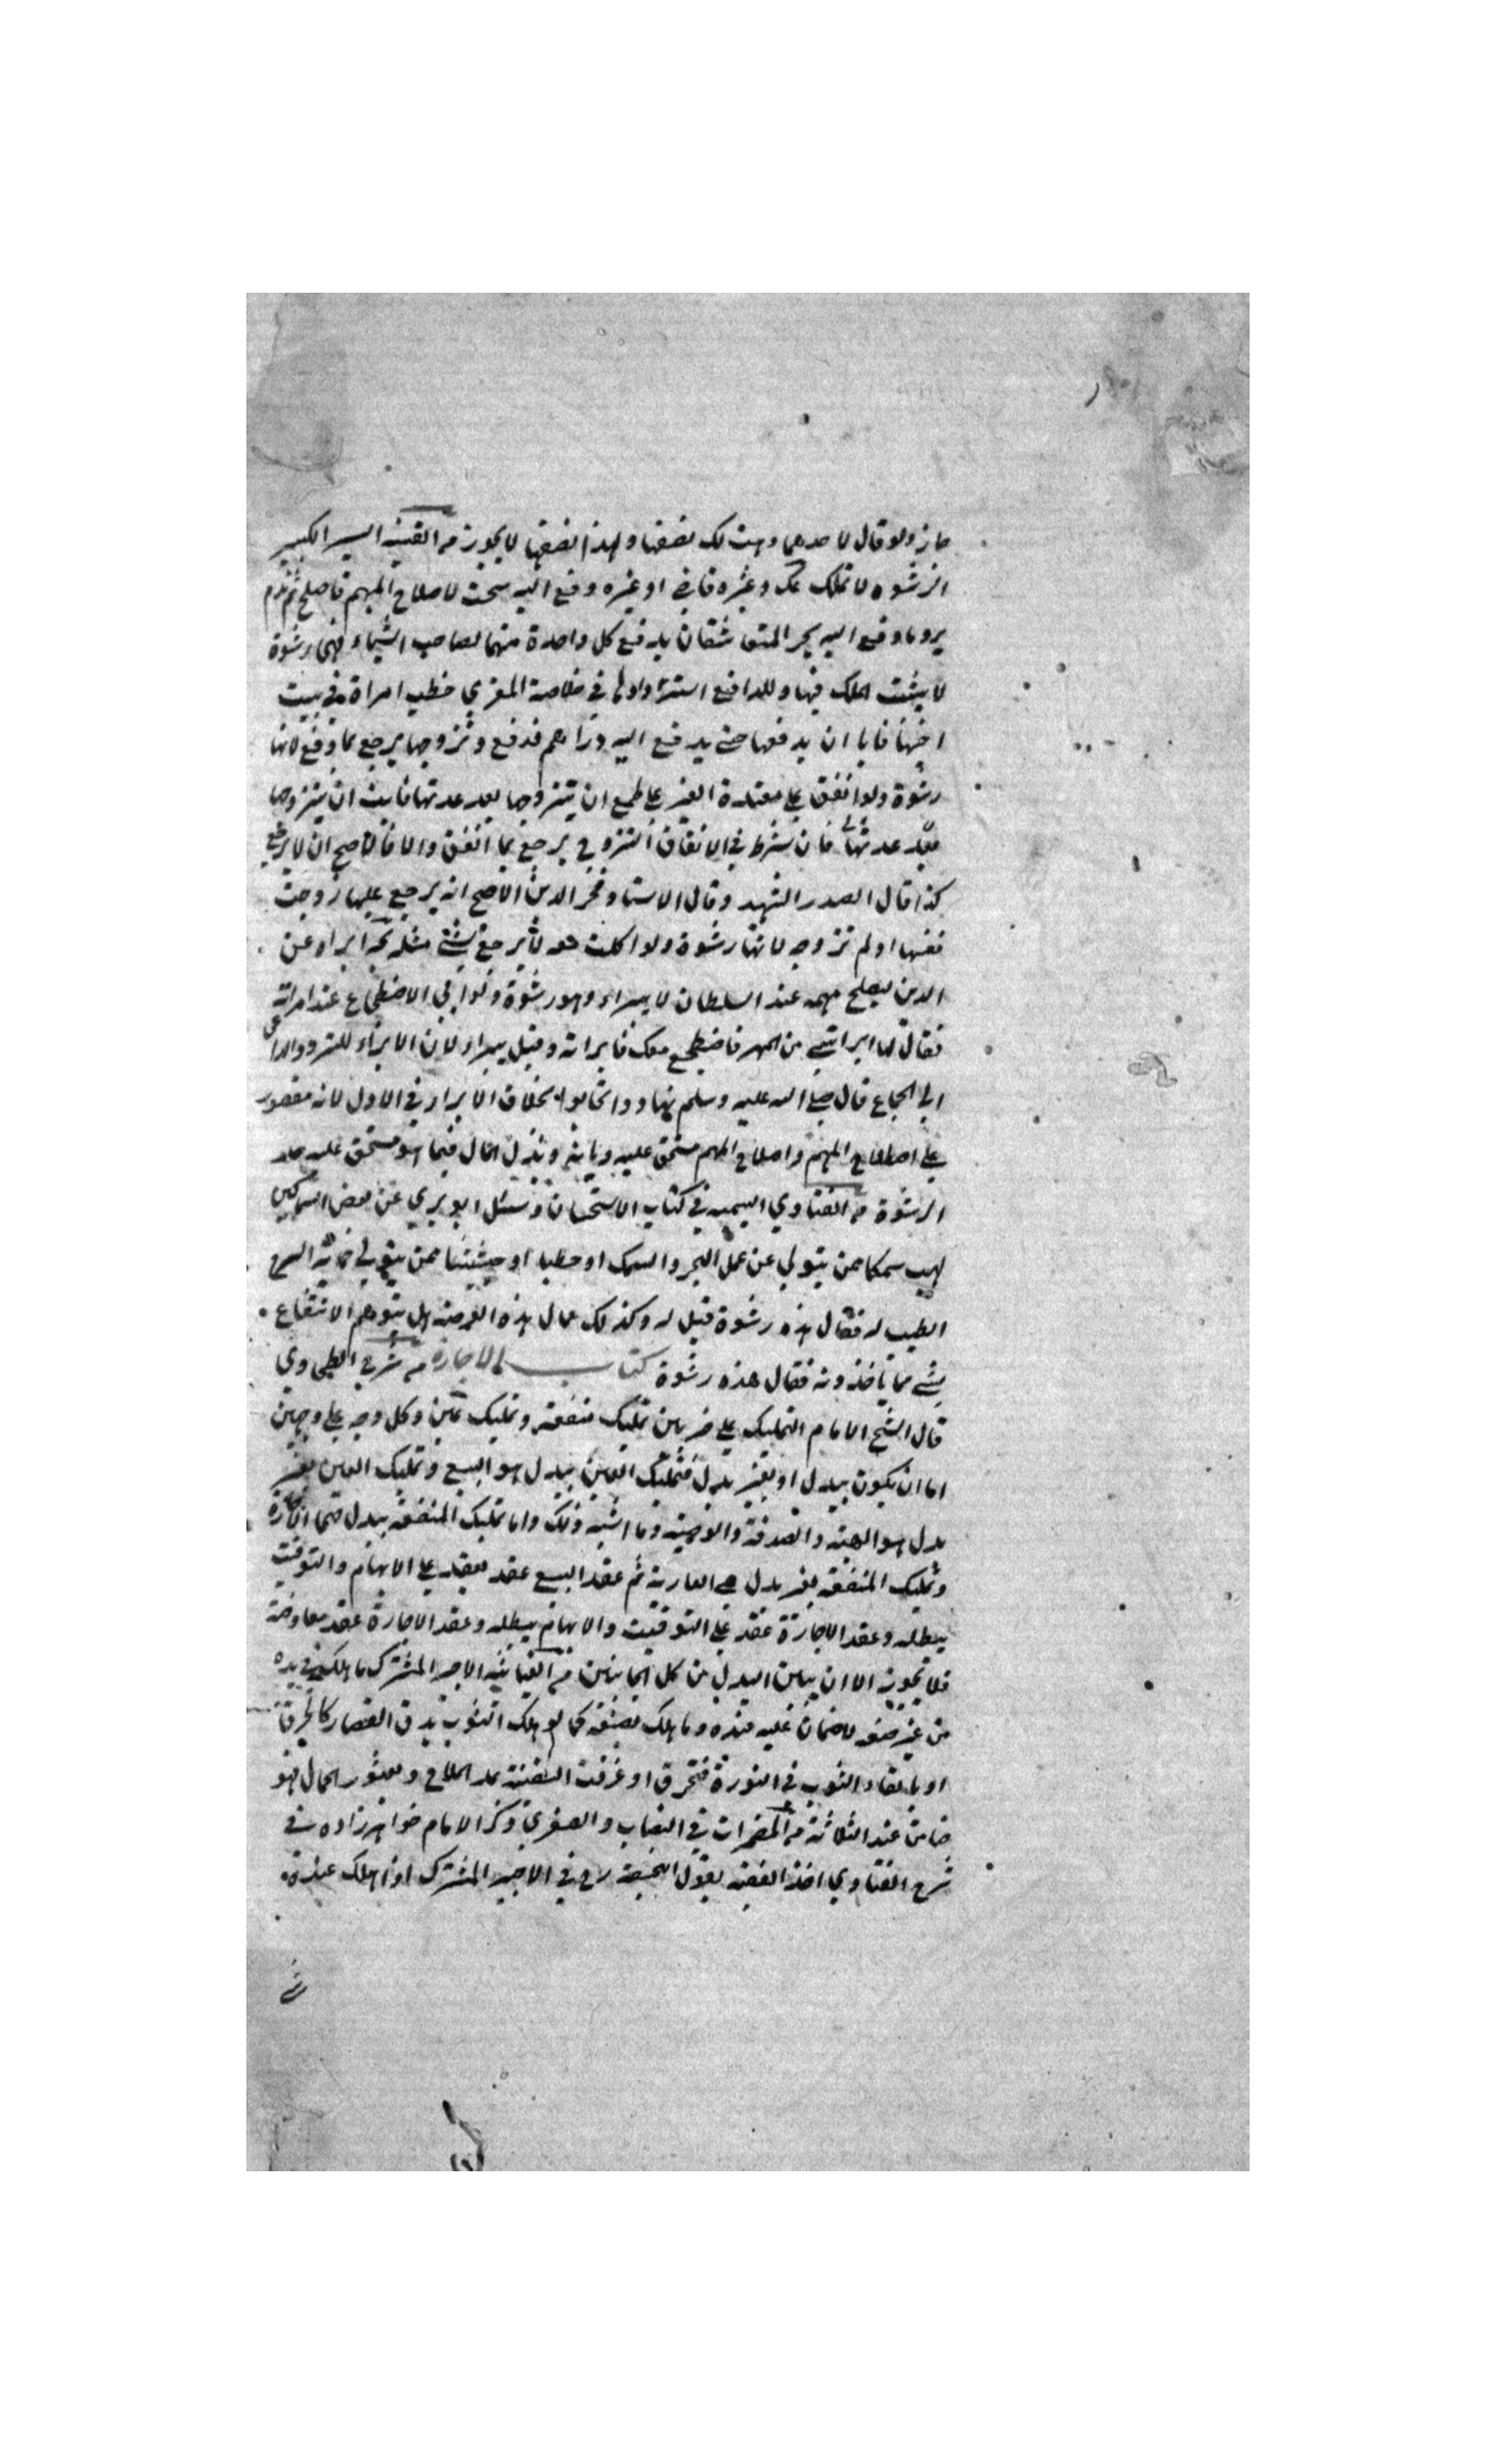 جاز ولو قال لاحدهما وهبت لك نصفها ولهذا نصفها لا يجوز من القنية السير الكبير
الرشوة لا تملك وغيره قاض او غيره دفع اليه سحت لاصلاح المهم فاصلح ثم ندم
يرد ما دفع اليه المتعاشقان يدفع كل واحدة منهما لصاحبه اشياء فهي رشوة
لا يثبت الملك فيها وللدافع استردادها في خلاصة المغزي خطب امراة في بيت
اخيها فابا ان يدفعها حتى يدفع اليه دراهم فدفع وتزوجها يرجع بما دفع لانها
رشوة ولو انفق على معتدة الغير على طمع ان يتزوجها بعد عدتها فابت ان يتزوجها
بعد عدتها فان شرط في الانفاق التزوج يرجع بما انفق والا فالاصح ان لا يرجع
كذا قال الصدر الشهيد وقال الاستاد فخر الدين الاصح انه يرجع عليها زوجت
نفسها او لم تزوج لانها رشوة ولو اكلت معه لا يرجع بشئ مثله ابراه عن
الدين ليصلح مهمه عند السلطان لا يبراء وهو رشوة ولو ابي الاضطجاع عند امراته
فقال لها ابرأتني من المهر فاضطجع معك فابراته وقيل يبراء لان الابراء للتودد الداعي
الى الجماع قال صلى الله عليه وسلم تهادوا تحابوا بخلاف الابراء في الاول لانه مقصور
على اصلاح المهم واصلاح المهم مستحق عليه ديانة وبذل المال فيما هو مستحق عليه حد
الرشوة من الفتاوي اليتيمة في كتاب الاستحسان وسئل ابو بري عن بعض السماكين
يهب سمكا ممن يتولي عن عمل البحر والسمك او حطبا او حشيشا ممن يتولي حماية السرح
الطيب له فقال هذه رشوة قيل له وكذلك عمال هذه العرصة هل يتوهم الانتفاع
بشئ مما ياخذونه فقال هذه رشوة كتاب الاجارة من شرح الطحاوي
قال الشيخ الامام التمليك على ضربين تمليك منفعة وتمليك عين وكل وجه على وجهين
اما ان يكون ببدل او بغير بدل فتمليك العين ببدل هو البيع وتمليك العين بغير
بدل هو الهبة والصدقة والوصية وما اشبه ذلك واما تمليك المنفعة ببدل هي الاجارة
وتمليك المنفعة بغير بدل هي العارية ثم عقد البيع عقد يعقد على الابهام والتوقيت
يبطله وعقد الاجارة عقد على التوقيت والابهام يبطله وعقد الاجارة عقد معاوضة
فلا تجوز الا ان يبين البدل من كل الجانبين من الغياثية الاجير المشترك ما هلك في يده
من غير صنعه لا ضمان عليه عنده وما هلك بصنعه كما لو هلك الثوب بدق القصار كالخرقة
او بالقاء الثوب في النورة فتحرق او غرقت السفينة بمد الملاح وبعثور الحمال فهو
ضامن عند الثلاثة من المضمرات في النصاب والصغري ذكر الامام خواهر زاده في
شرح الفتاوي اخذ الفقيه بقول ابي حنيفة رح في الاجير المشترك اذا هلك عنده